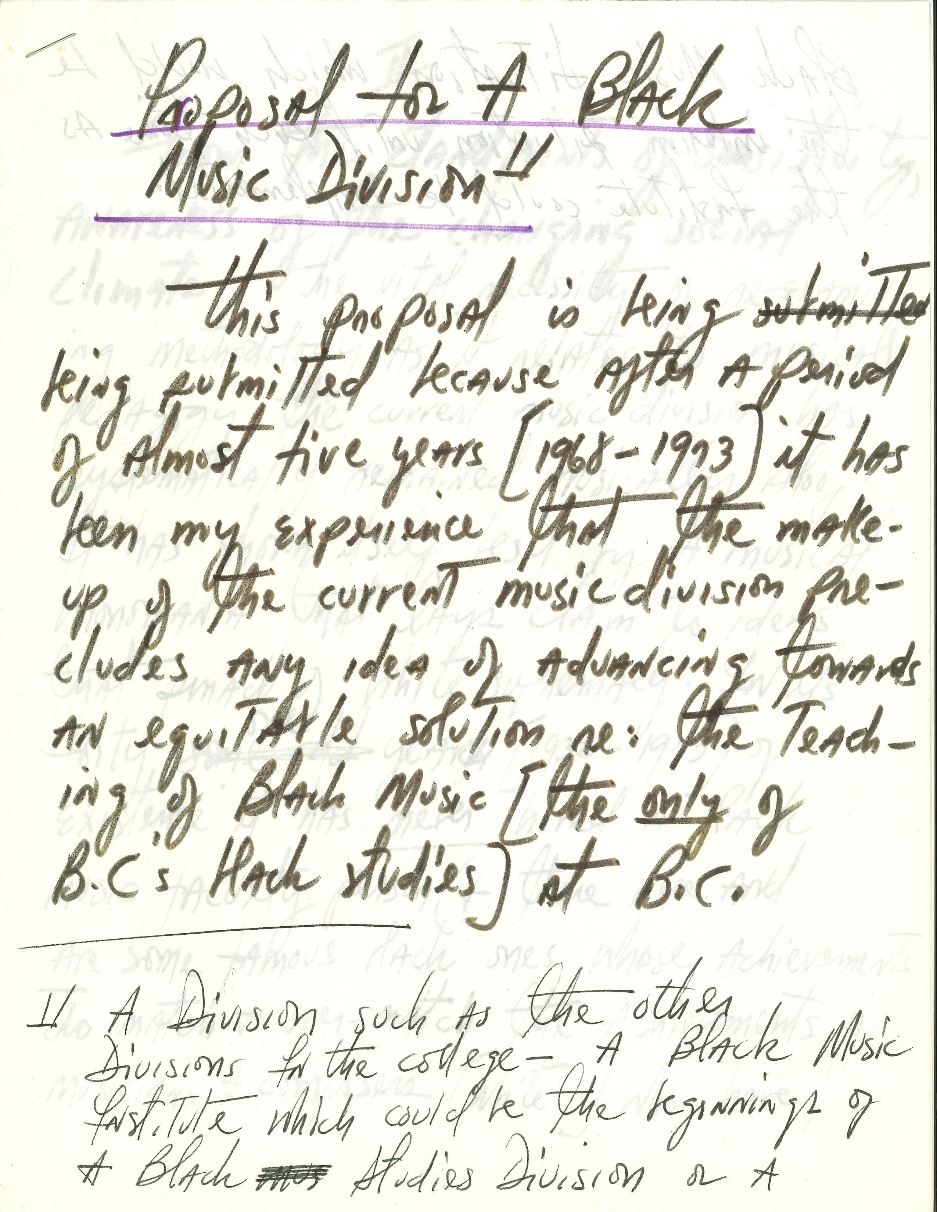 Proposal for A Black
Music Division 1/
This proposal is being submitted
being submitted because after a period
of Almost five years [1968-1973] it has
been my experience that the make-
up of the current music division pre-
cludes any idea of advancing towards
an equitable solution re: the Teach-
ing of Black Music [the only of
B.C's black studies] at B.C.
1/ A Division such as the other
Divisions in the college - A Black Music
Institute which could be the beginnings of
A Black Studies Division or A